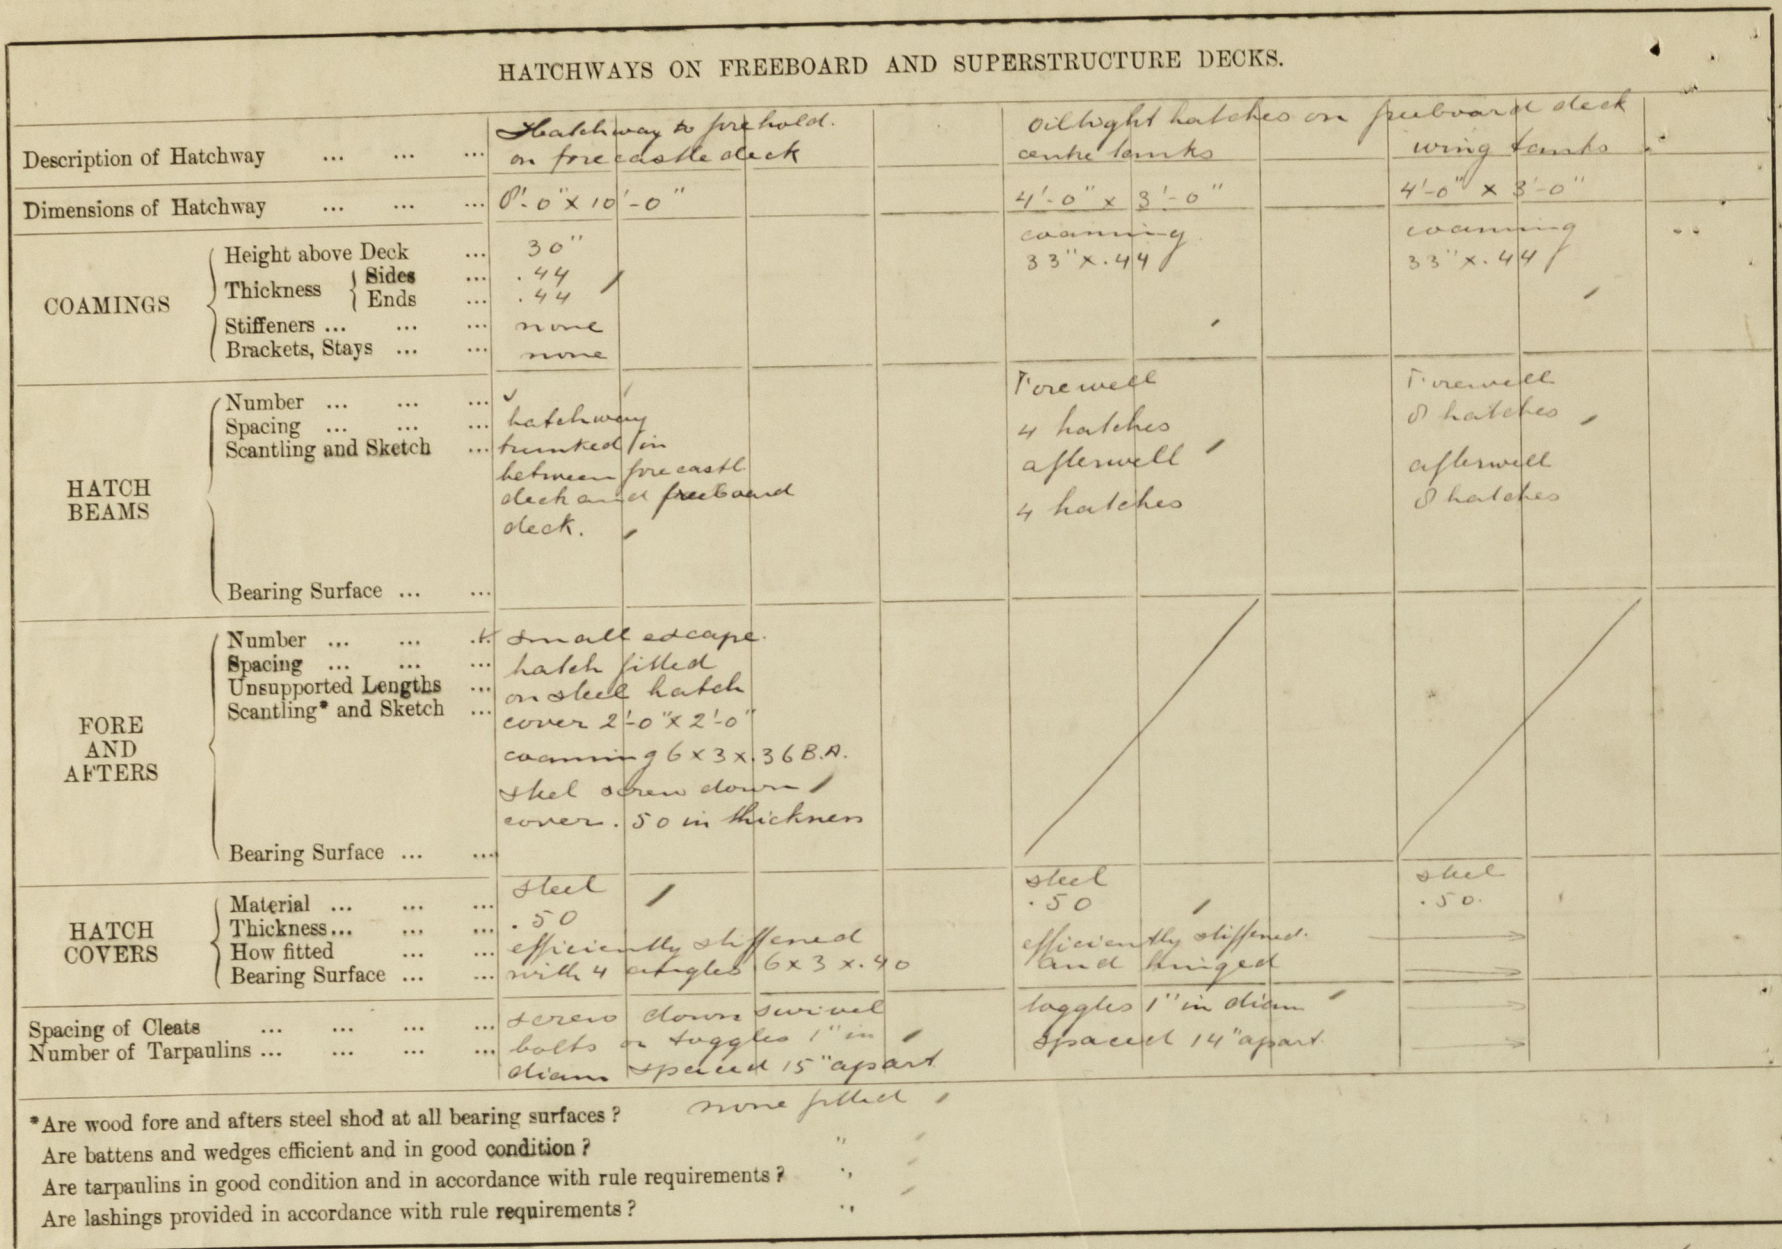 HATCHWAYS ON FREEBOARD AND SUPERSTRUCTURE DECKS.
Hatchway to fore hold. Oiltight hatches on freeboard deck
Description of Hatchway ... ... ... on forecastle deck centre tanks wing tanks
Dimensions of Hatchway ... ... ... 8'-0" x 10'-0" 4'-0" x 3'-0" 4'-0" x 3'-0"
COAMINGS
Height above Deck ... 30" coaming coaming
Thickness { Sides ... .44 33" x .44 33" x .44
Ends ... .44
Stiffeners ... ... ... none
Brackets, Stays ... ... none
HATCH BEAMS
Number ... ... ...
Spacing ... ... ...
Scantling and Sketch ...
Bearing Surface ... ...
hatchway
trunked in
between forecastle
deck and freeboard
deck.
Forewell
4 hatches
afterwell
4 hatches
Forewell
8 hatches
afterwell
8 hatches
FORE AND AFTERS
Number ... ... ...
Spacing ... ... ...
Unsupported Lengths ...
Scantling* and Sketch ...
Bearing Surface ... ...
small escape.
hatch fitted
on steel hatch
cover 2'-0" x 2'-0"
coaming 6 x 3 x .36 B.A.
steel screw down
cover .50 in thickness
HATCH COVERS
Material ... ... ... steel steel steel
Thickness... ... ... .50 .50 .50
How fitted ... ... efficiently stiffened efficiently stiffened.
Bearing Surface ... ... with 4 angles 6 x 3 x .40 and hinged
Spacing of Cleats ... ... ... ... screw down swivel toggles 1" in diam
Number of Tarpaulins ... ... ... ... bolts or toggles 1" in spaced 14" apart.
diam spaced 15" apart
*Are wood fore and afters steel shod at all bearing surfaces? none fitted
Are battens and wedges efficient and in good condition? "
Are tarpaulins in good condition and in accordance with rule requirements? "
Are lashings provided in accordance with rule requirements? "